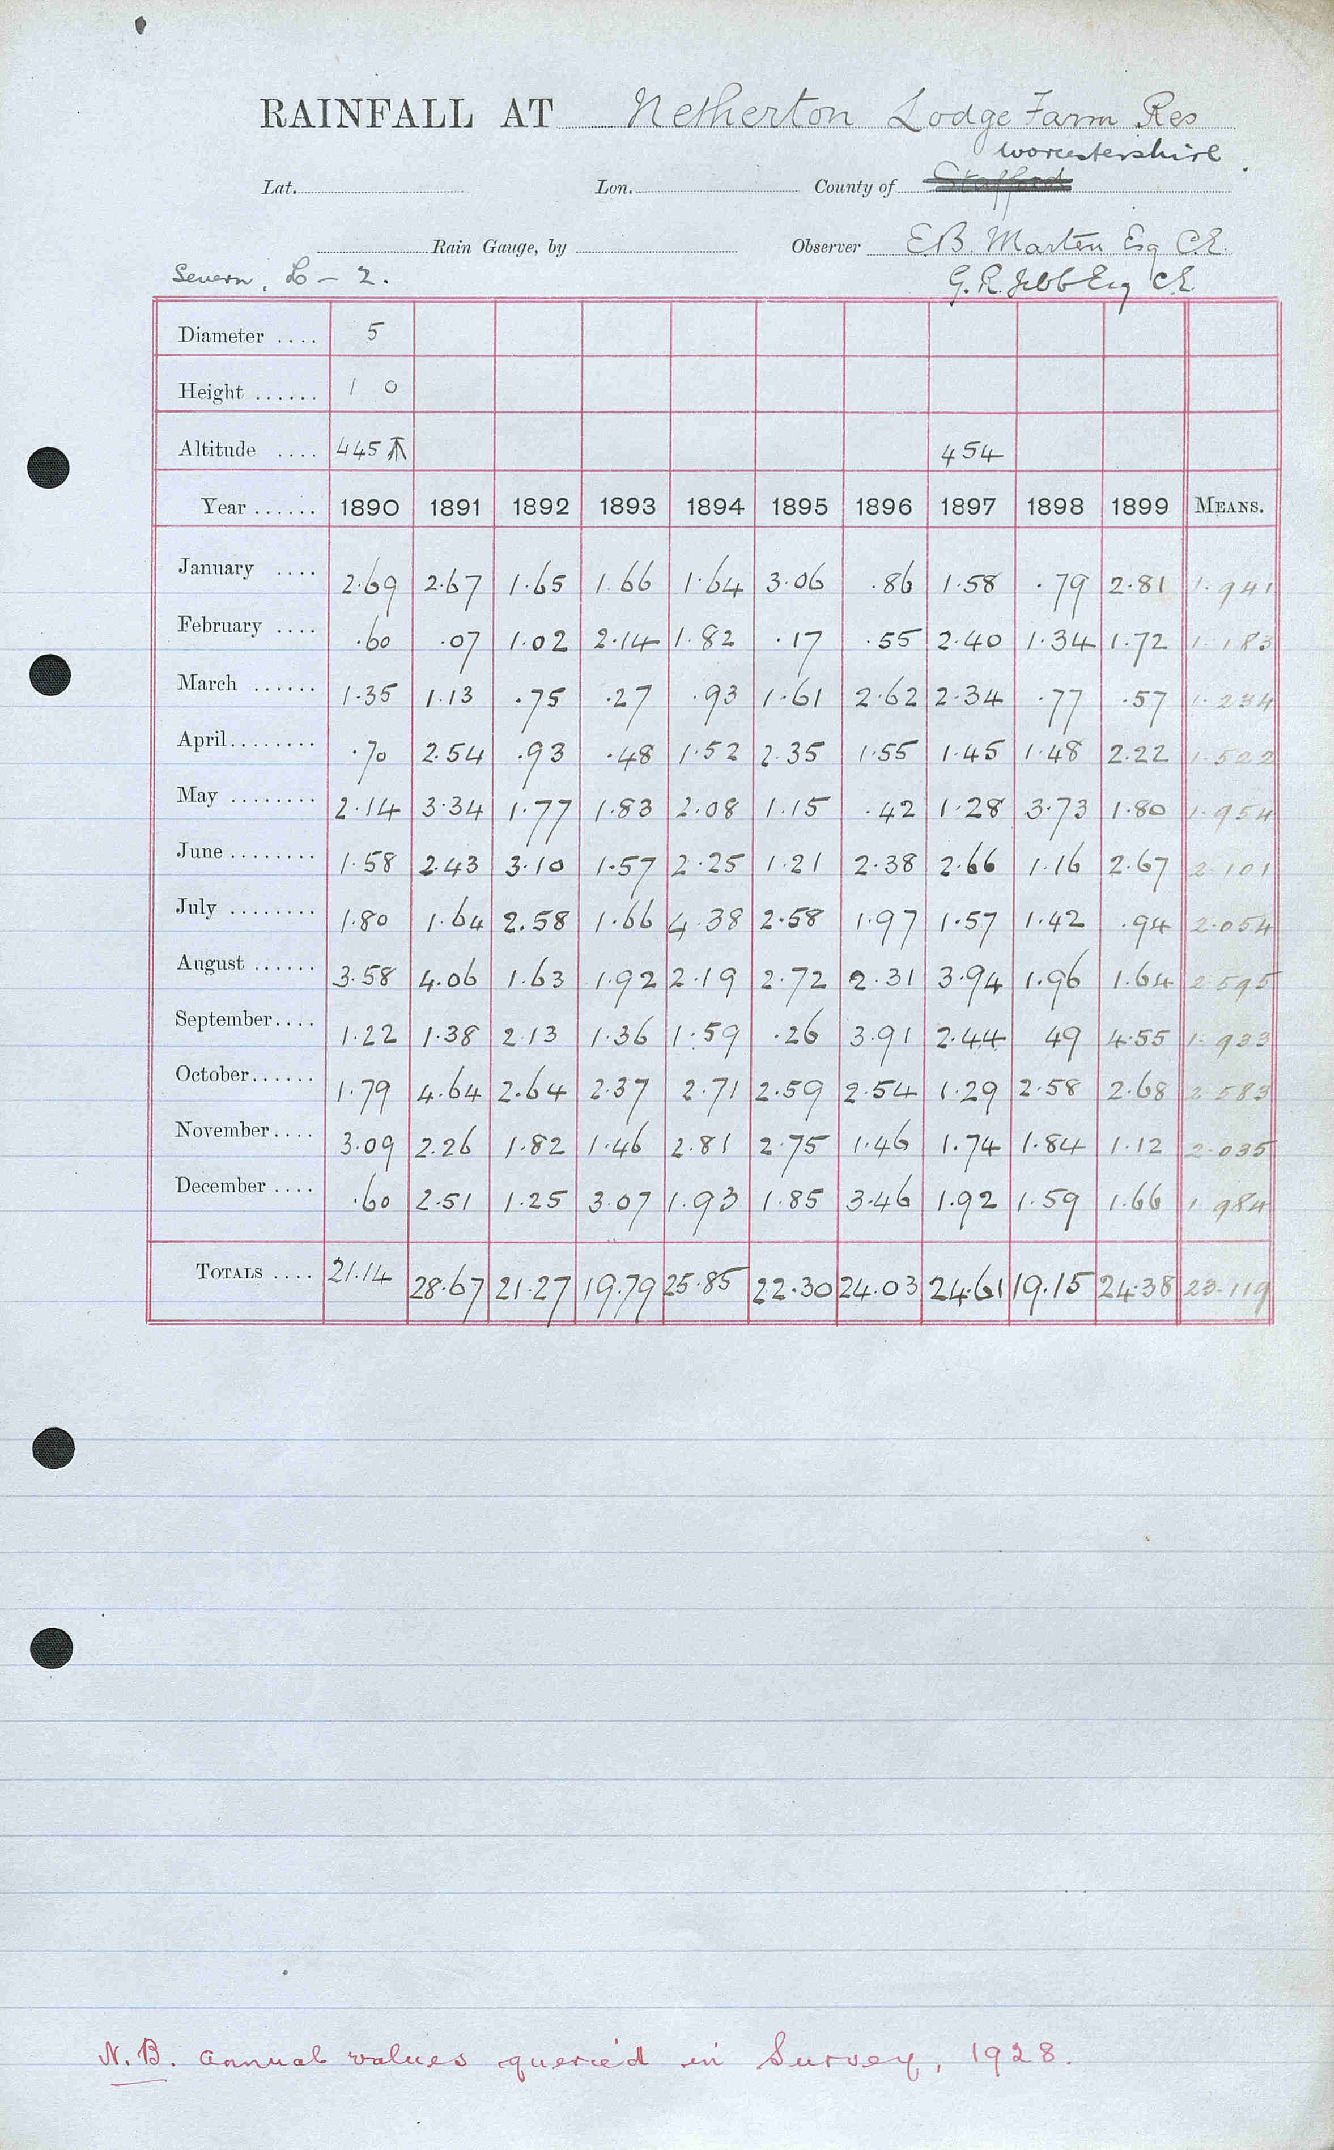 RAINFALL AT Netherton Lodge Farm Res
Worcestershire
Lat. Lon. County of Stafford
Rain Gauge, by Observer E.B. Marten Esq C.E.
Severn. L - 2. G. R. Jebb Esq C.E.
Diameter .... 5
Height ...... 1 0
Altitude .... 445 454
Year ...... 1890 1891 1892 1893 1894 1895 1896 1897 1898 1899 MEANS.
January .... 2.69 2.67 1.65 1.66 1.64 3.06 .86 1.58 .79 2.81 1.941
February .... .60 .07 1.02 2.14 1.82 .17 .55 2.40 1.34 1.72 1.183
March ...... 1.35 1.13 .75 .27 .93 1.61 2.62 2.34 .77 .57 1.234
April........ .70 2.54 .93 .48 1.52 2.35 1.55 1.45 1.48 2.22 1.522
May ........ 2.14 3.34 1.77 1.83 2.08 1.15 .42 1.28 3.73 1.80 1.954
June ........ 1.58 2.43 3.10 1.57 2.25 1.21 2.38 2.66 1.16 2.67 2.101
July ........ 1.80 1.64 2.58 1.66 4.38 2.58 1.97 1.57 1.42 .94 2.054
August ...... 3.58 4.06 1.63 1.92 2.19 2.72 2.31 3.94 1.96 1.64 2.595
September.... 1.22 1.38 2.13 1.36 1.59 .26 3.91 2.44 49 4.55 1.933
October...... 1.79 4.64 2.64 2.37 2.71 2.59 2.54 1.29 2.58 2.68 2.583
November.... 3.09 2.26 1.82 1.46 2.81 2.75 1.46 1.74 1.84 1.12 2.035
December .... .60 2.51 1.25 3.07 1.93 1.85 3.46 1.92 1.59 1.66 1.984
TOTALS .... 21.14 28.67 21.27 19.79 25.85 22.30 24.03 24.61 19.15 24.38 23.119
N.B. annual values queried in Survey, 1928.